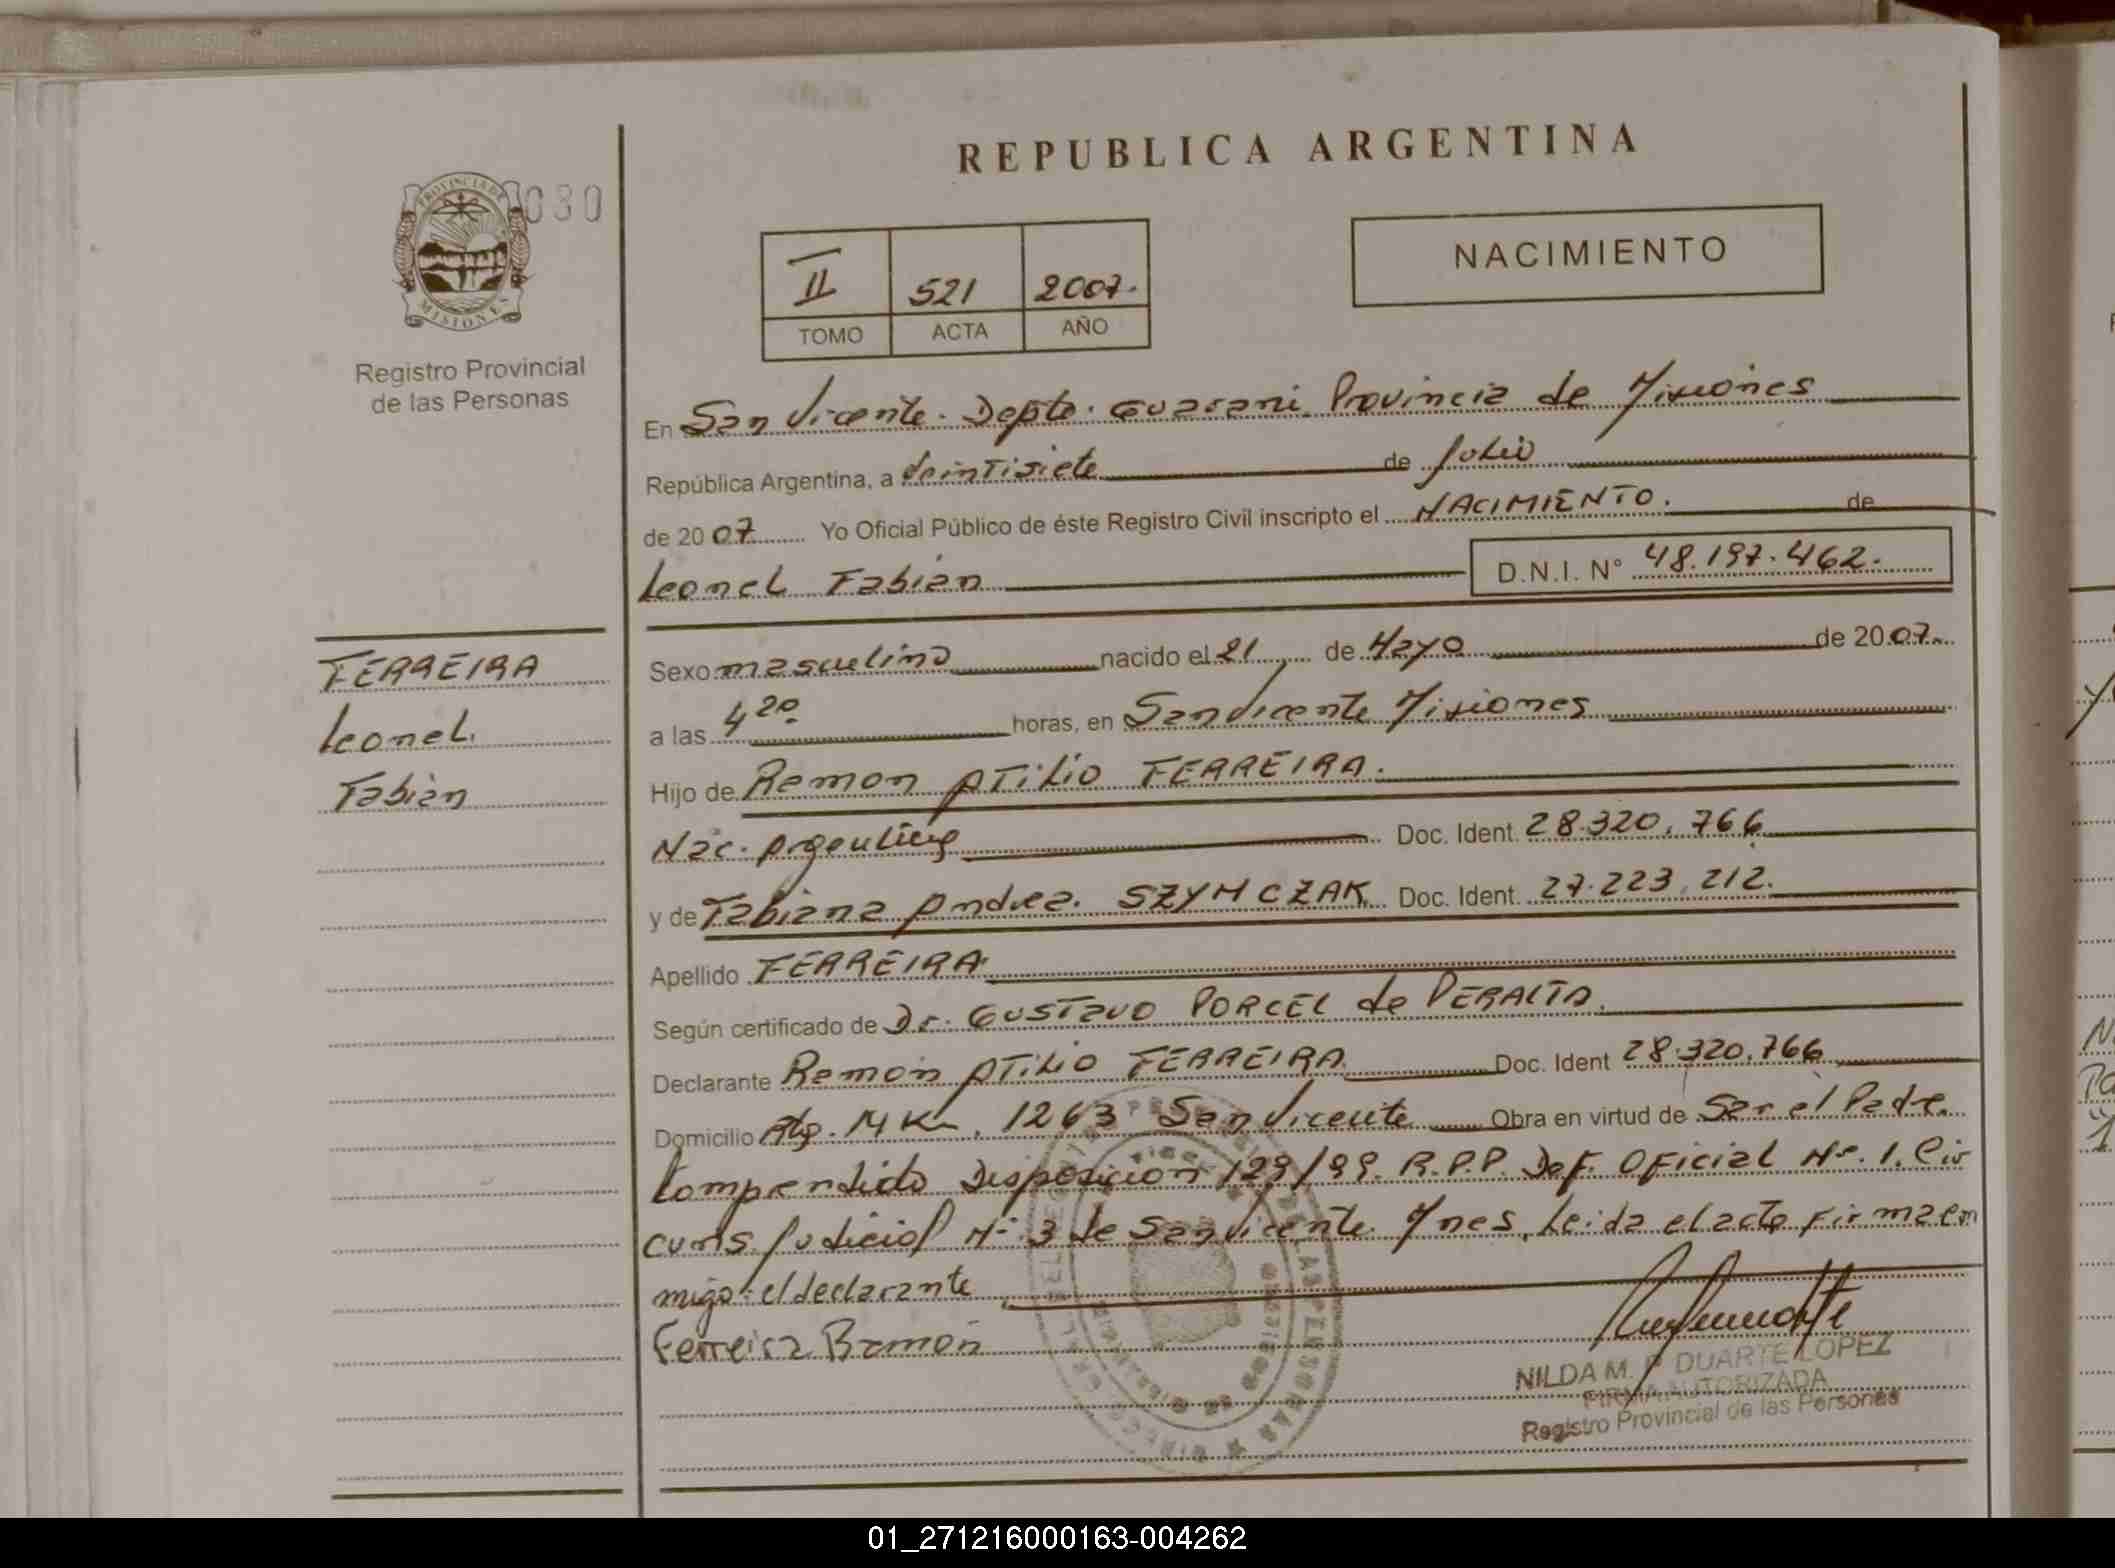 PROVINCIA DE
MISIONES
030
Registro Provincial
de las Personas
FERREIRA
Leonel
Fabian
REPUBLICA ARGENTINA
II 521 2007.
TOMO ACTA AÑO
NACIMIENTO
En San Vicente. Depto. Guarani Provincia de Misiones
República Argentina, a veintisiete de Julio
de 2007 Yo Oficial Público de éste Registro Civil inscripto el NACIMIENTO. de
Leonel Fabian D.N.I. N° 48.197.462.
Sexo masculino nacido el 21 de Mayo de 2007.
a las 4 20 horas, en San Vicente Misiones
Hijo de Ramon Atilio FERREIRA.
Nac. Argentina Doc. Ident. 28.320.766
y de Fabiana Andrea. SZYMCZAK Doc. Ident. 27.223.212.
Apellido FERREIRA
Según certificado de Dr. GUSTAVO PORCEL de PERALTA.
Declarante Ramon Atilio FERREIRA Doc. Ident 28.320.766
Domicilio Km. 1263 San Vicente Obra en virtud de Ser el Padre.
Comprendido Disposicion 129/99. R.P.P. Def. Oficial Nº. 1. Cir
cuns. Judicial Nº 3 de San Vicente Mnes. Leida el acta firma con
migo el declarante
Ferreira Ramon
NILDA M. P. DUARTE LOPEZ
FIRMA AUTORIZADA
Registro Provincial de las Personas
01_271216000163-004262